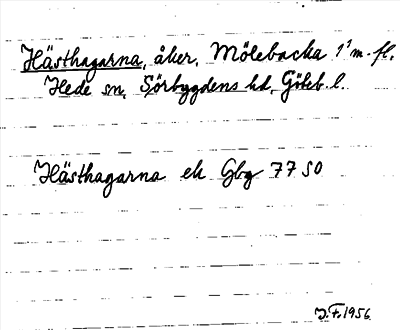 Hästhagarna, åker, Mölebacka 1¹ m. fl.
Hede sn, Sörbygdens hd, Göteb. l.
Hästhagarna ek Gbg 77 50
J.F. 1956